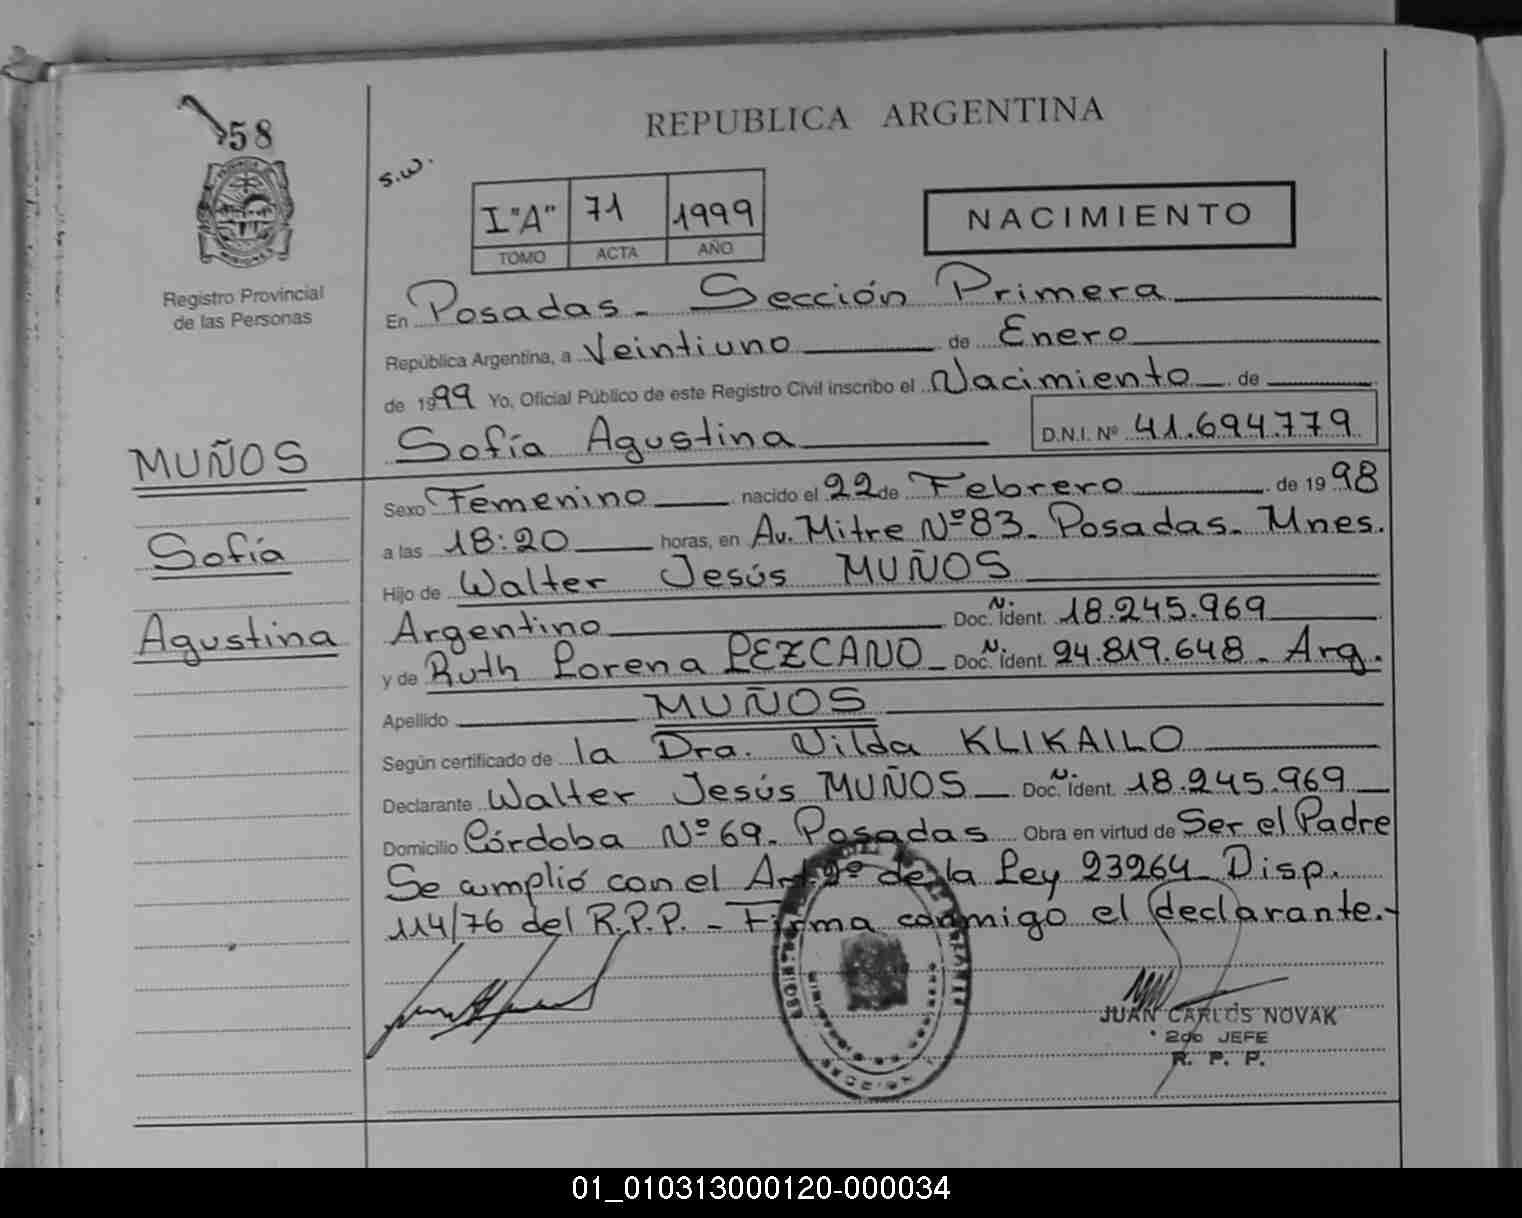 58
REPUBLICA ARGENTINA
s.w.
I "A" 71 1999
TOMO ACTA AÑO
NACIMIENTO
Registro Provincial
de las Personas
En Posadas - Sección Primera
República Argentina, a Veintiuno de Enero
de 1999 Yo, Oficial Público de este Registro Civil inscribo el Nacimiento de
Sofía Agustina D.N.I. Nº 41.694.779
MUÑOS
Sofía
Agustina
Sexo Femenino nacido el 22 de Febrero de 1998
a las 18:20 horas, en Av. Mitre Nº 83 - Posadas - Mnes.
Hijo de Walter Jesús MUÑOS
Argentino Doc. N. Ident. 18.245.969
y de Ruth Lorena LEZCANO - Doc. N. Ident. 24.819.648 - Arg.
Apellido MUÑOS
Según certificado de la Dra. Nilda KLIKAILO
Declarante Walter Jesús MUÑOS Doc. N. Ident. 18.245.969
Domicilio Córdoba Nº 69 - Posadas Obra en virtud de Ser el Padre
Se cumplió con el Art. 2º de la Ley 23264 - Disp.
114/76 del R.P.P. - Firma conmigo el declarante.-
JUAN CARLOS NOVAK
2do JEFE
R. P. P.
01_010313000120-000034